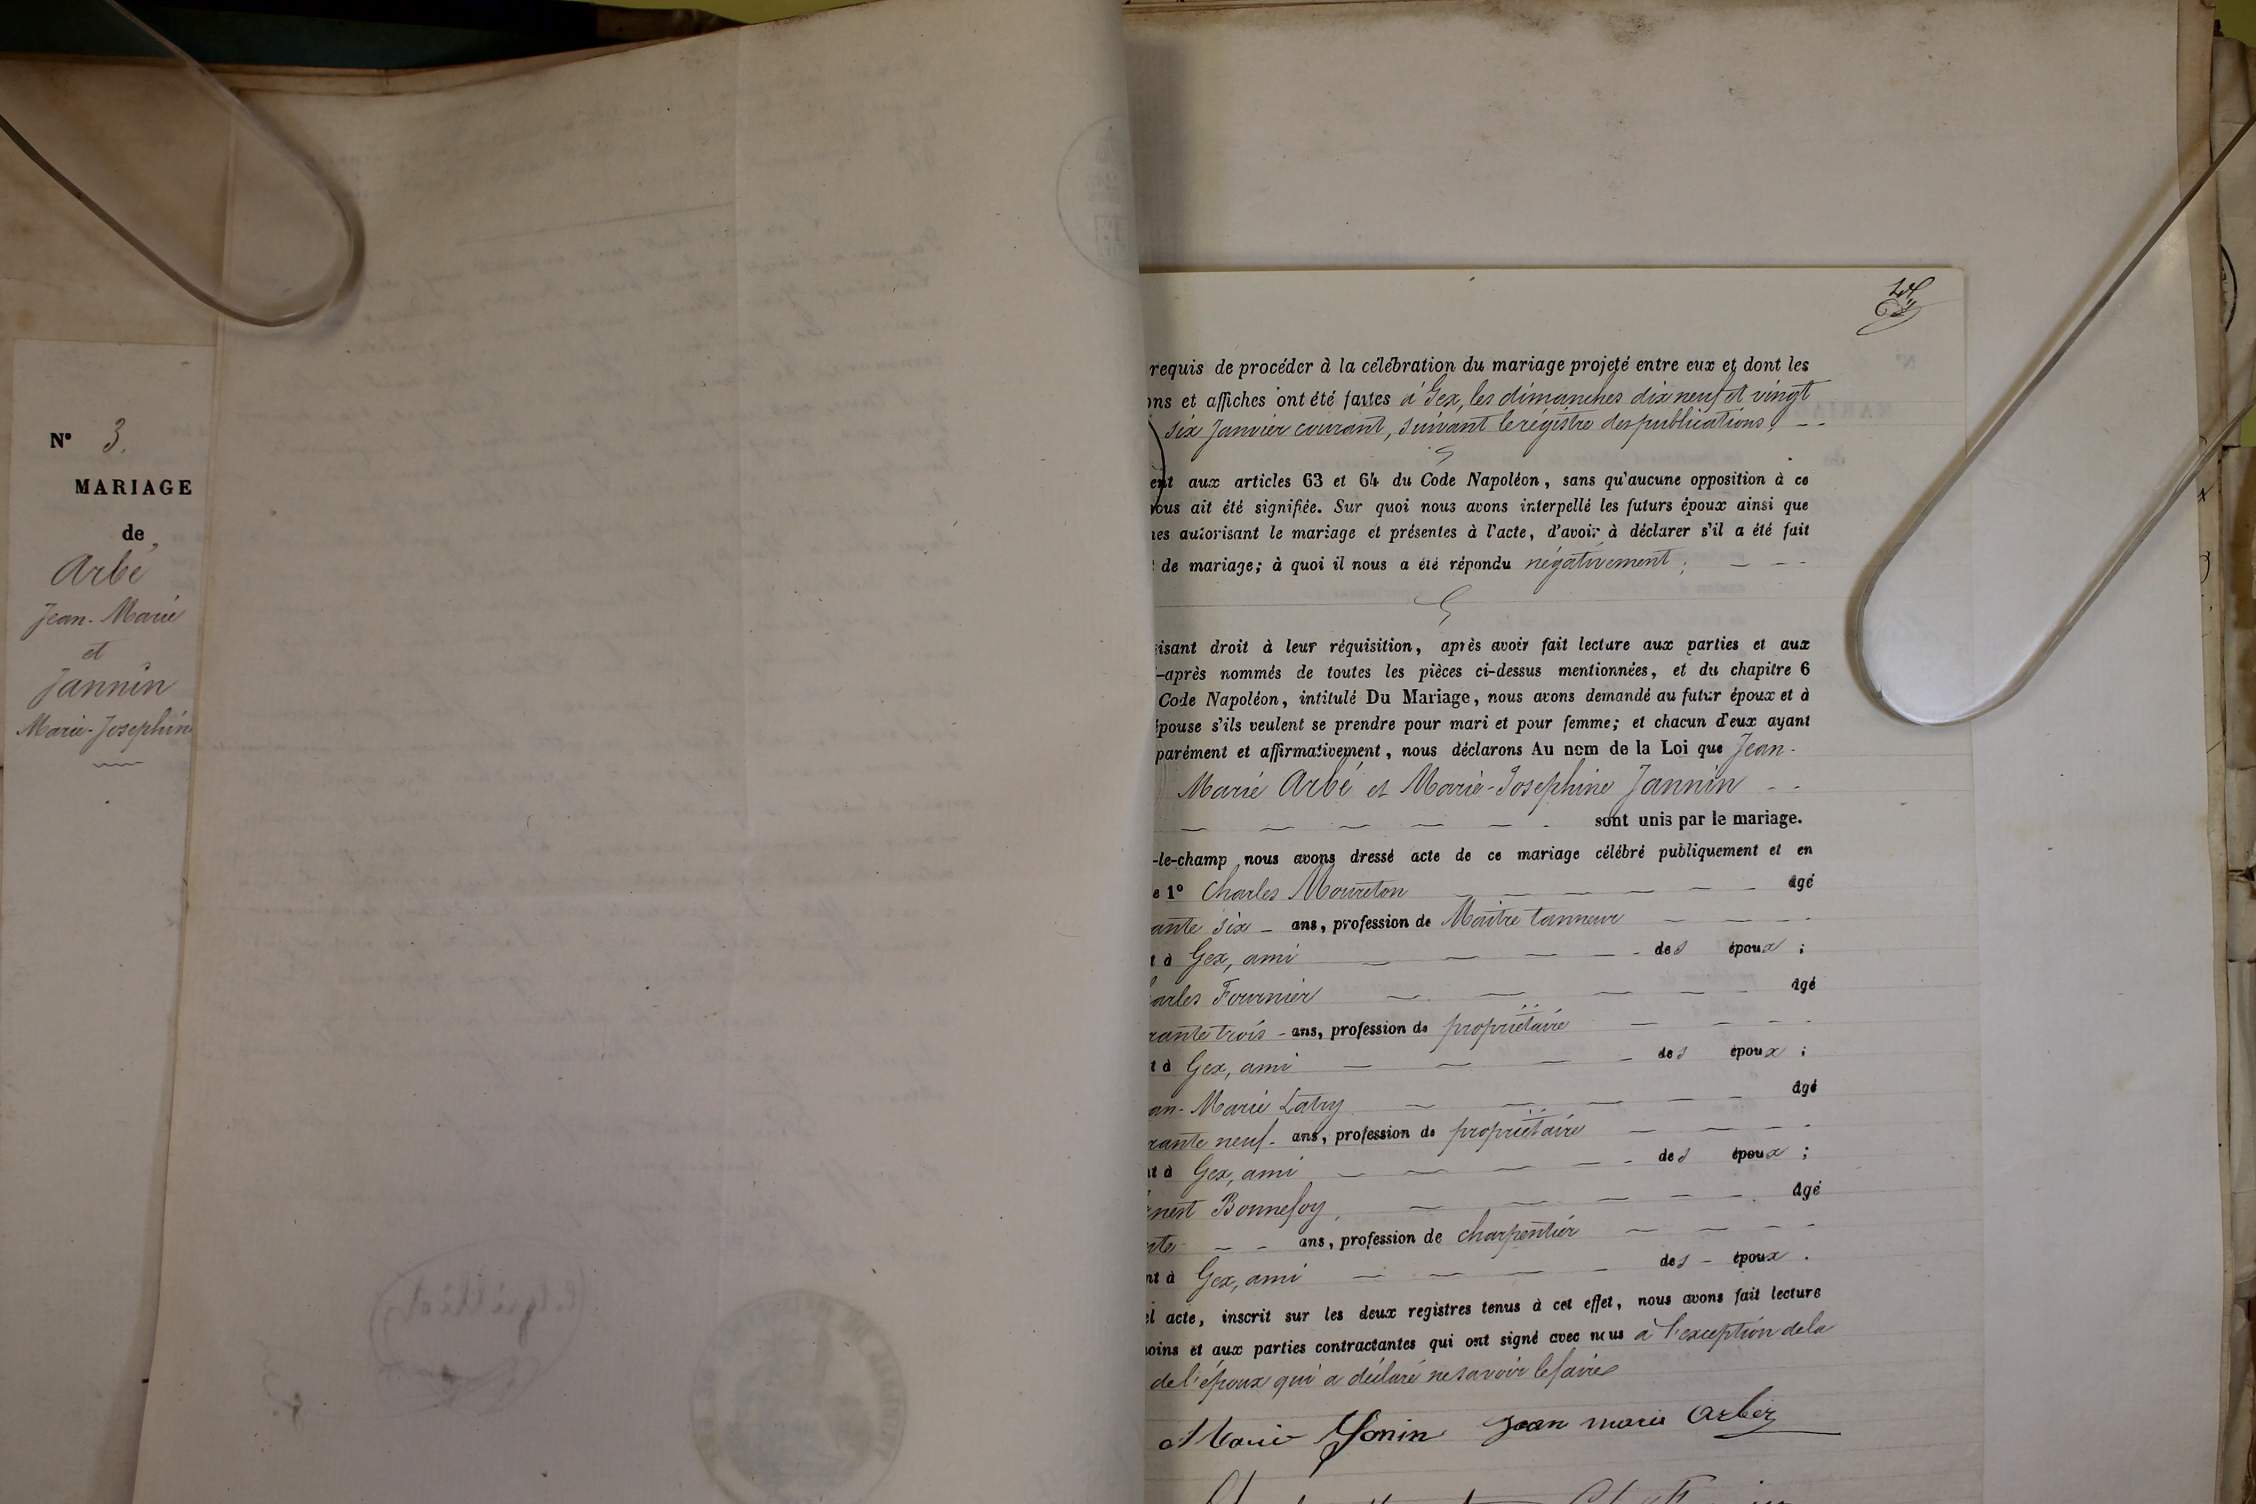 N° 3.
MARIAGE
de
Arbé
Jean-Marie
et
Jannin
Marie-Josephin
requis de procéder à la célébration du mariage projeté entre eux et dont les
ons et affiches ont été faites à Gex, les dimanches dix neuf et vingt
six Janvier courant, suivant le régistre des publications,
ent aux articles 63 et 64 du Code Napoléon, sans qu'aucune opposition à ce
nous ait été signifiée. Sur quoi nous avons interpellé les futurs époux ainsi que
nes autorisant le mariage et présentes à l'acte, d'avoir à déclarer s'il a été fait
de mariage; à quoi il nous a été répondu négativement;
isant droit à leur réquisition, après avoir fait lecture aux parties et aux
-après nommés de toutes les pièces ci-dessus mentionnées, et du chapitre 6
Code Napoléon, intitulé Du Mariage, nous avons demandé au futur époux et à
épouse s'ils veulent se prendre pour mari et pour femme; et chacun d'eux ayant
parément et affirmativement, nous déclarons Au nom de la Loi que Jean-
Marie Arbé et Marie-Josephine Jannin
sont unis par le mariage.
-le-champ nous avons dressé acte de ce mariage célébré publiquement et en
e 1° Charles Moureton âgé
ante six ans, profession de Maître tanneur
t à Gex, ami des époux ;
arles Fournier âgé
rante trois ans, profession de propriétaire
t à Gex, ami des époux ;
an-Marie Latry âgé
rante neuf ans, profession de propriétaire
nt à Gex, ami des époux ;
rnest Bonnefoy, âgé
nte ans, profession de charpentier
nt à Gex, ami des époux .
el acte, inscrit sur les deux registres tenus à cet effet, nous avons fait lecture
oins et aux parties contractantes qui ont signé avec nous à l'exception de la
de l'époux qui a déclaré ne savoir le faire
Marie Jonin Jean marie Arbez